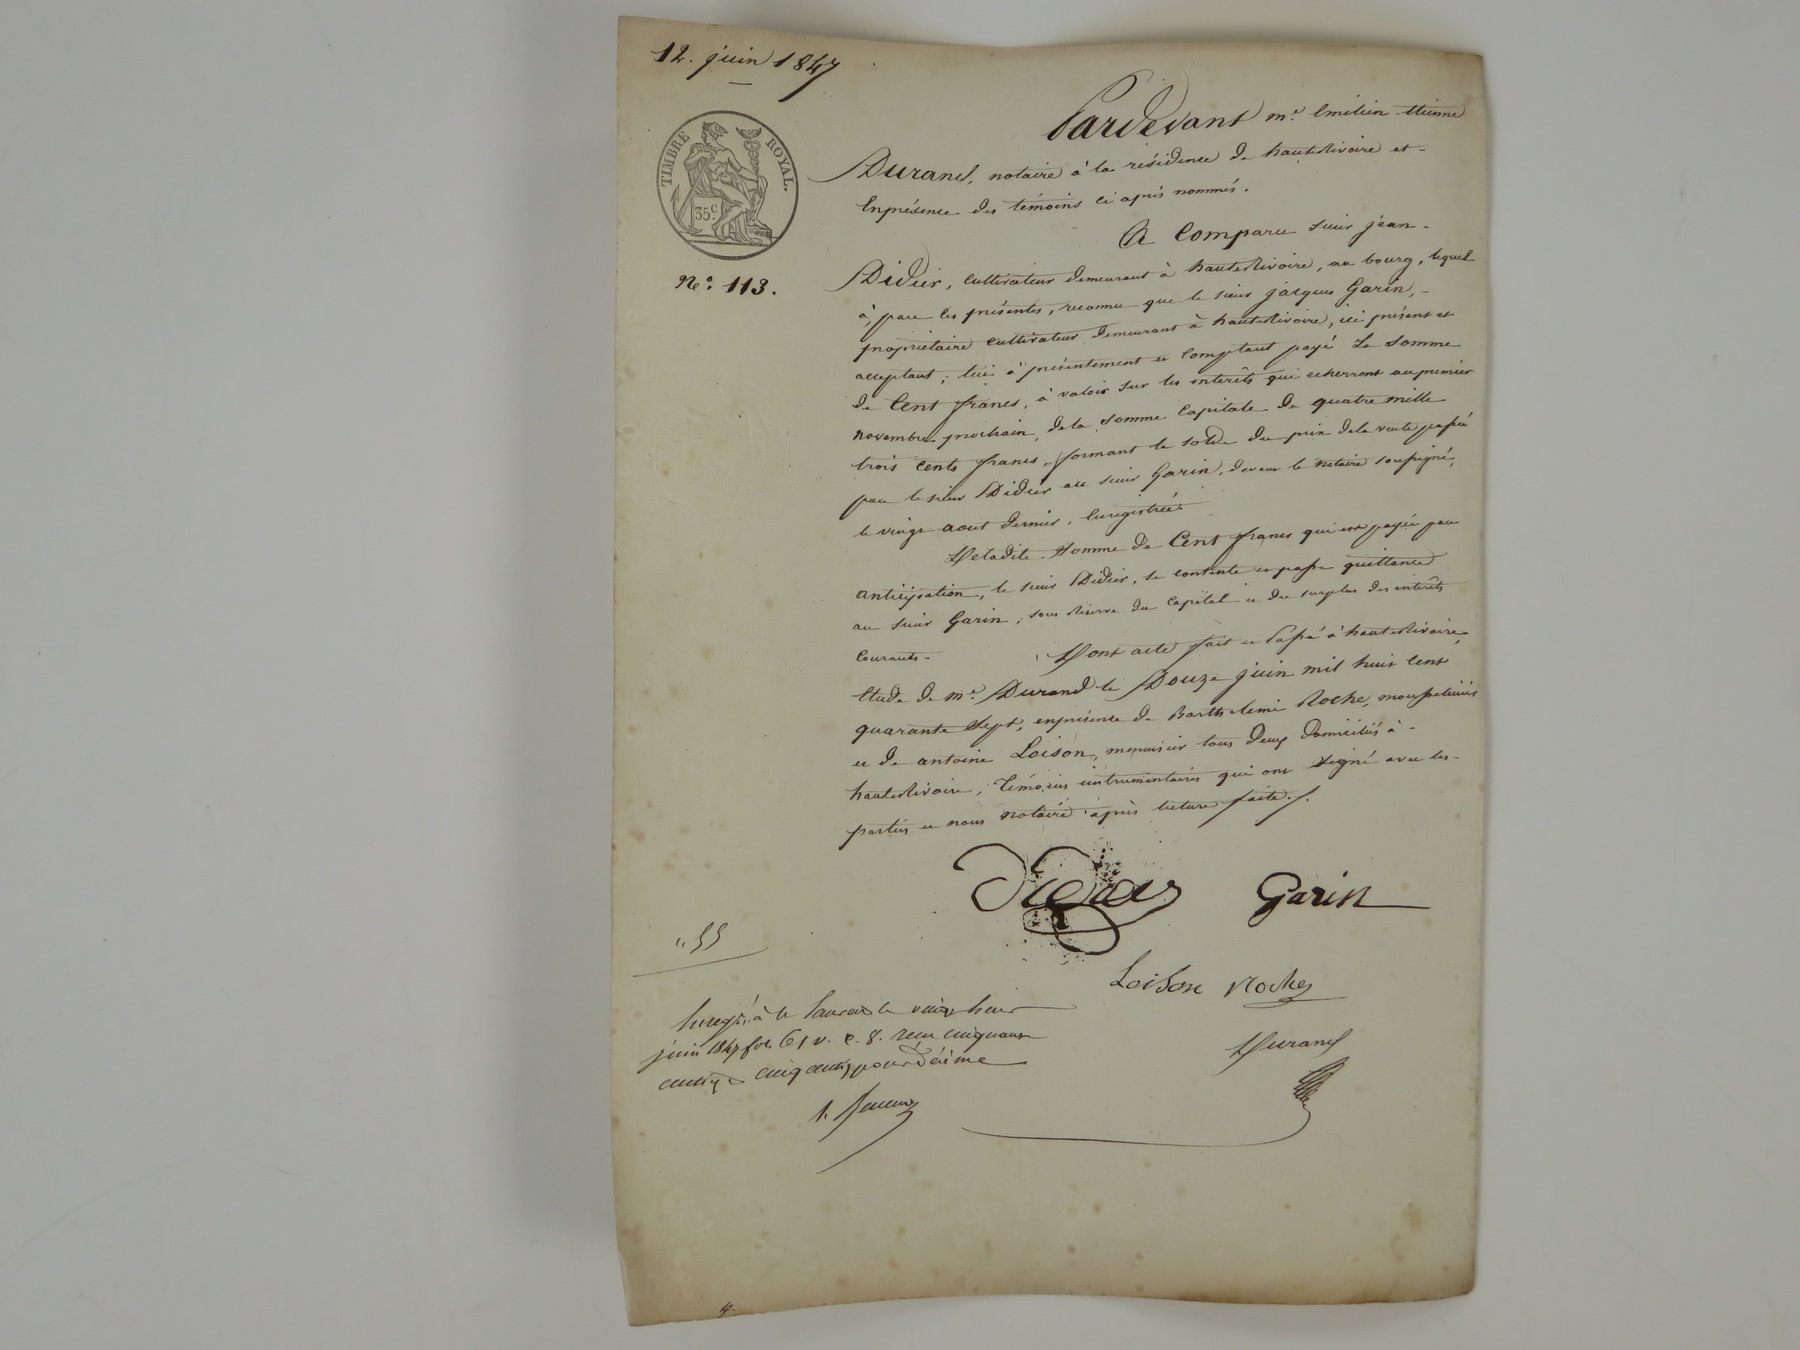 12. juin 1847
TIMBRE ROYAL.
35c
No. 113.
Pardevant me. Emilien Etienne
Durand, notaire à la résidence de hauterivoire et
Enprésence des témoins ci après nommés.
A Comparu sieur jean
Didier, cultivateur demeurant à hauterivoire, au bourg, lequel
à, par les présentes, reconnu que le sieur jacques Garin,
propriétaire cultivateur demeurant à hauterivoire, ici présent et
acceptant; lui à présentement et comptant payé La Somme
de Cent francs, à valoir sur les interêts qui echerront au premier
novembre prochain, dela somme Capitale de quatre mille
trois cents francs, formant le solde du prix dela vente passée
par le sieur Didier au sieur Garin, devant le notaire soussigné,
le vingt aout dernier, Enregistrée.
Deladite Somme de Cent francs qui est payée par
anticipation, le sieur Didier, se contente et passe quittance
au sieur Garin, sous Réserve du Capital et du surplus des interêts
Courants.
Dont acte fait et Passé à hauterivoire,
Etude de me. Durand le Douze juin mil huit cent
quarante Sept, enprésence de Barthelemi Roche,
et de antoine Loison, menuisier tous deux domiciliés à
hauterivoire, Témoins instrumentaires qui ont Signé avec les
parties et nous notaire après lecture faite.
Didier Garin
55
Loison Roche
Enregé. à St Laurent le vingt huit
juin 1847 fol. 61 v. c. 8. reçu cinquante
centimes cinq centes pour décime
Durand